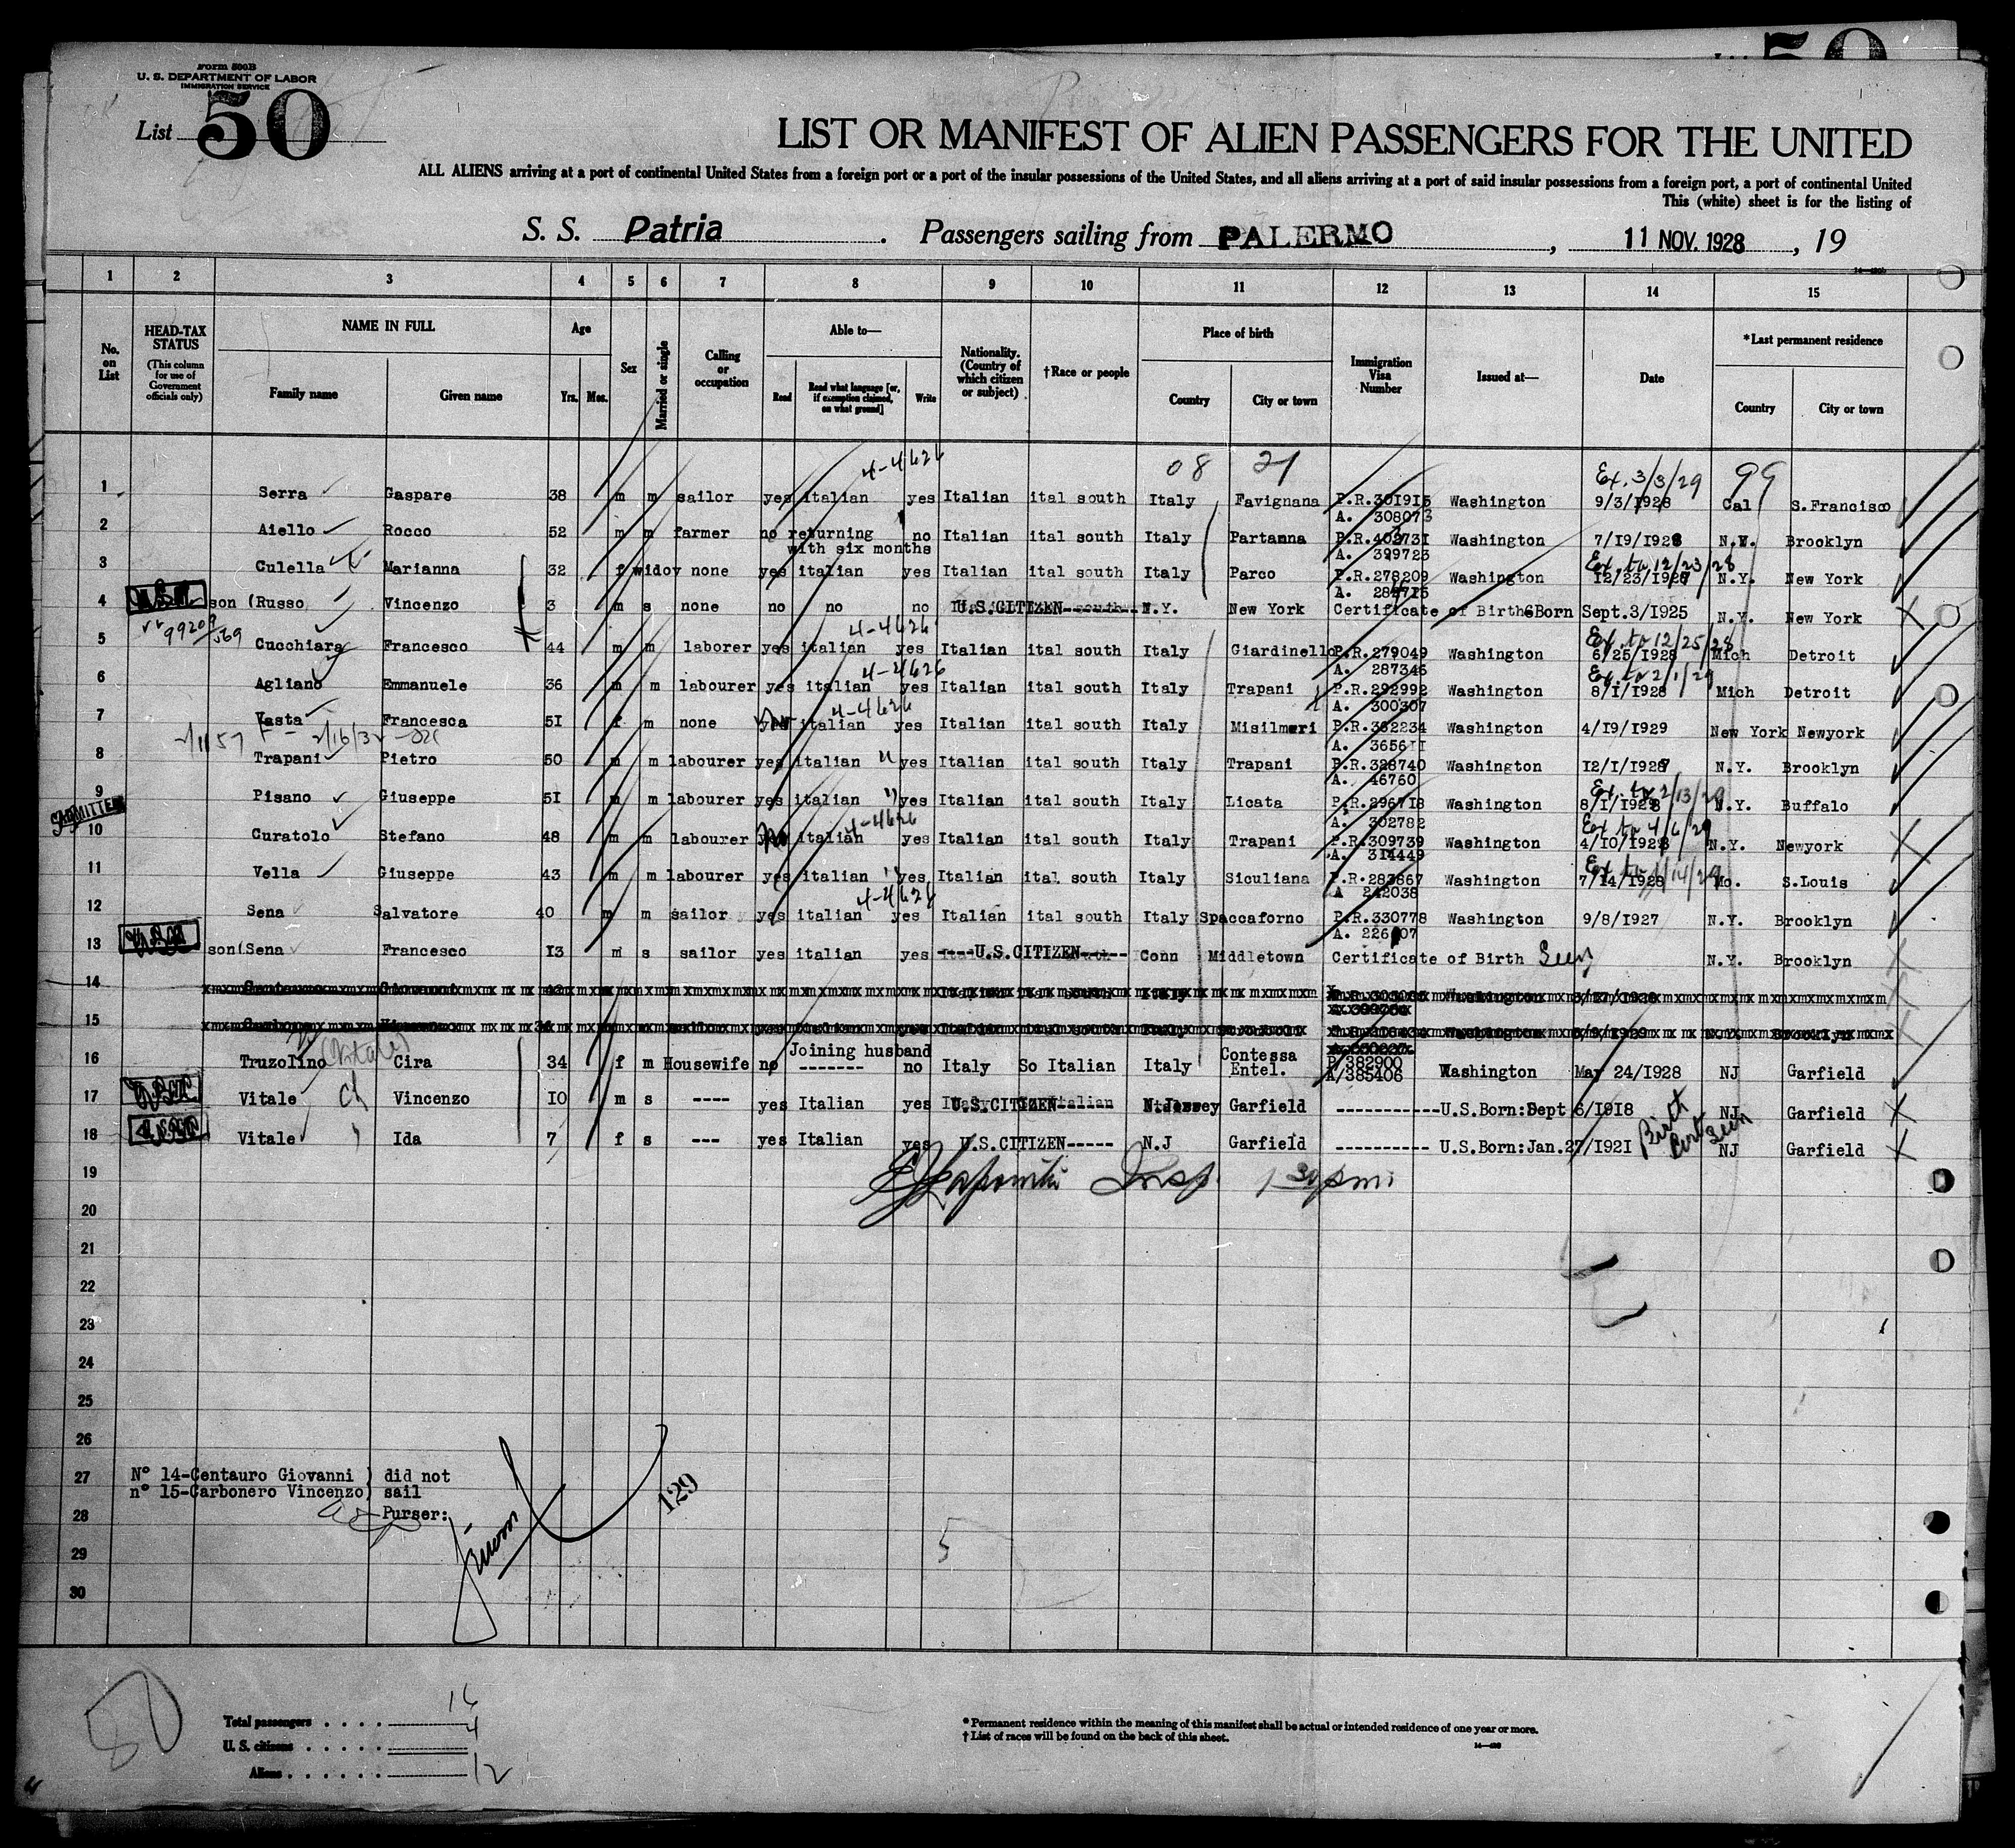 Form 500B
U. S. DEPARTMENT OF LABOR
IMMIGRATION SERVICE
List 50
LIST OR MANIFEST OF ALIEN PASSENGERS FOR THE UNITED
ALL ALIENS arriving at a port of continental United States from a foreign port or a port of the insular possessions of the United States, and all aliens arriving at a port of said insular possessions from a foreign port, a port of continental United
This (white) sheet is for the listing of
S. S. Patria. Passengers sailing from PALERMO, 11 NOV. 1928, 19
1 2 3 4 5 6 7 8 9 10 11 12 13 14 15
No. on List
HEAD-TAX STATUS (This column for use of Government officials only)
NAME IN FULL Family name Given name
Age Yrs. Mos.
Sex
Married or single
Calling or occupation
Able to— Read Read what language [or, if exemption claimed, on what ground] Write
Nationality. (Country of which citizen or subject)
†Race or people
Place of birth Country City or town
Immigration Visa Number
Issued at—
Date
*Last permanent residence Country City or town
4-4626 08 21 Ex. 3/3/29 99
1 Serra Gaspare 38 m m sailor yes italian yes Italian ital south Italy Favignana P.R.301915 Washington 9/3/1928 Cal S.Francisco
A. 308073
2 Aiello Rocco 52 m m farmer no returning no Italian ital south Italy Partanna P.R.402731 Washington 7/19/1928 N.Y. Brooklyn
with six months A. 399723
Ex. to 12/23/28
3 Culella Marianna 32 f widov none yes italian yes Italian ital south Italy Parco P.R.278209 Washington 12/23/1927 N.Y. New York
A. 288715
4 son (Russo Vincenzo 3 m s none no no no U.S.CITIZEN N.Y. New York Certificate of Birth Born Sept.3/1925 N.Y. New York
99209/569 4-4626 Ex. to 12/25/28
5 Cucchiara Francesco 44 m m laborer yes italian yes Italian ital south Italy Giardinello P.R.279049 Washington 6/25/1928 Mich Detroit
A. 287346
4-4626 Ex. to 2/1/29
6 Agliano Emmanuele 36 m m labourer yes italian yes Italian ital south Italy Trapani P.R.292992 Washington 8/1/1928 Mich Detroit
A. 300307
4-4626
7 Vasta Francesca 51 f m none yes italian yes Italian ital south Italy Misilmeri P.R.362234 Washington 4/19/1929 New York Newyork
A. 365611
8 Trapani Pietro 50 m m labourer yes italian " yes Italian ital south Italy Trapani P.R.328740 Washington 12/1/1927 N.Y. Brooklyn
A. 46760
Ex. to 2/13/29
9 Pisano Giuseppe 51 m m labourer yes italian " yes Italian ital south Italy Licata P.R.296718 Washington 8/1/1928 N.Y. Buffalo
A. 302782
ADMITTED 4-4626 Ex to 4/6/29
10 Curatolo Stefano 48 m m labourer no italian yes Italian ital south Italy Trapani P.R.309739 Washington 4/10/1928 N.Y. Newyork
A. 314449
11 Vella Giuseppe 43 m m labourer yes italian " yes Italian ital south Italy Siculiana P.R.283867 Washington 7/14/1928 Mo. S.Louis
A 242038
12 Sena Salvatore 40 m m sailor yes italian yes Italian ital south Italy Spaccaforno P.R.330778 Washington 9/8/1927 N.Y. Brooklyn
13 son(Sena Francesco 13 m s sailor yes italian yes ----U.S.CITIZEN----- Conn Middletown Certificate of Birth Seen N.Y. Brooklyn
14
15
16 Truzolino (Vitale) Cira 34 f m Housewife no Joining husband ------- no Italy So Italian Italy Contessa Entel. P/382900 Washington May 24/1928 NJ Garfield
A/385406
17 Vitale Vincenzo 10 m s ---- yes Italian yes U.S.CITIZEN N.Jersey Garfield -----------U.S.Born:Sept 6/1918 NJ Garfield
Birt Cert Seen
18 Vitale Ida 7 f s --- yes Italian yes U.S.CITIZEN----- N.J Garfield ---------- U.S.Born:Jan.27/1921 NJ Garfield
Insp. 1 30 pm
19
20
21
22
23
24
25
26
27 N° 14-Centauro Giovanni ) did not
n° 15-Carbonero Vincenzo) sail
28 Purser:
129
29
30
5
80
Total passengers . . . . 16
U. S. citizens . . . . . 4
Aliens . . . . . . 12
* Permanent residence within the meaning of this manifest shall be actual or intended residence of one year or more.
† List of races will be found on the back of this sheet.